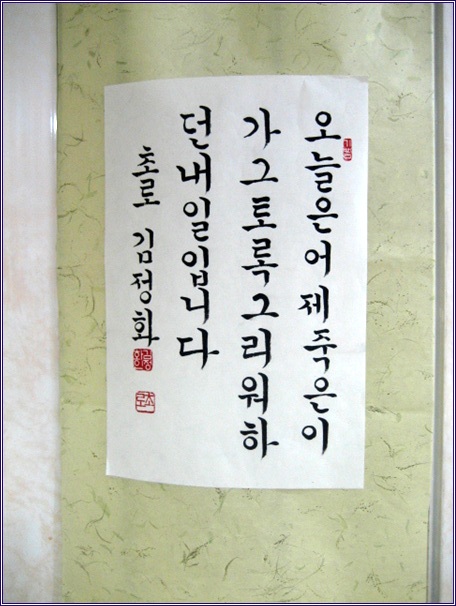 오늘은어제죽은이
가그토록그리워하
던내일입니다
초로 김정화